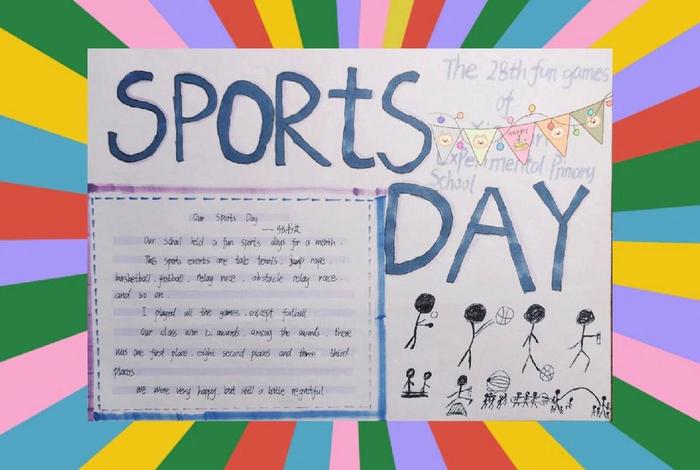 SPORtS
DAY
The 28th fun games
of
Experimental Primary
School
HAPPY
Our Sports Day
Our school held a fun sports days for a month.
This sports events are table tennis, jump rope,
basketball, football, relay race, obstacle relay race
and so on.
I played all the games, except football.
Our class won 12 awards, among the awards, there
was one first place, eight second places and three third
places.
We were very happy, but still a little regretful.